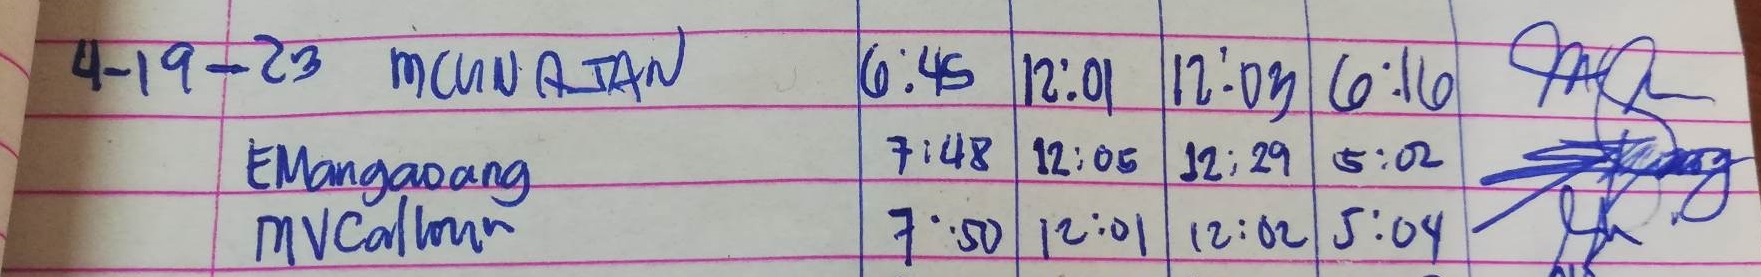 4-19-23 MCUNAJAN 6:45 12:01 12:03 6:16
EMangaoang 7:48 12:05 12:29 5:02
7:50 12:01 12:02 5:04